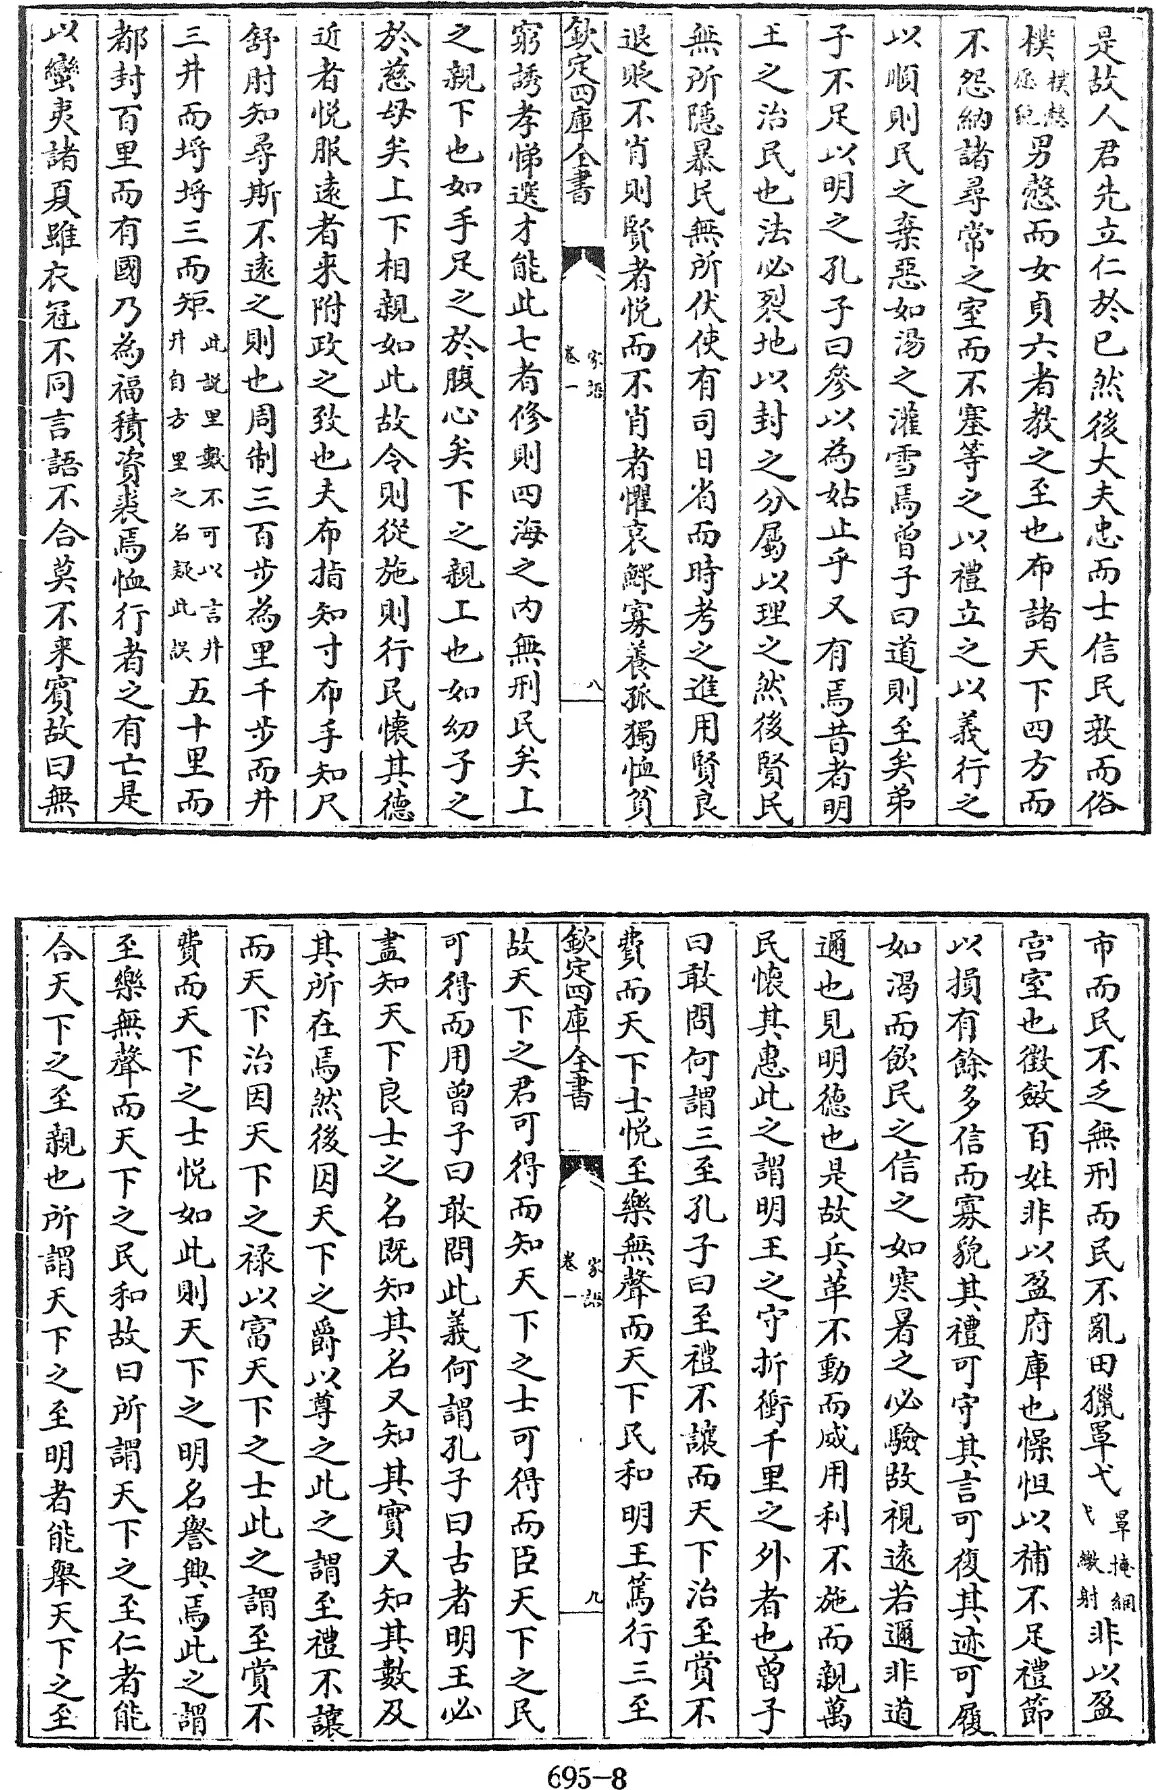 是故人君先立仁於已然後大夫忠而士信民敦而俗
樸樸慤愿純男慤而女貞六者教之至也布諸天下四方而
不怨納諸尋常之室而不塞等之以禮立之以義行之
以順則民之棄惡如湯之灌雪焉曾子曰道則至矣弟
子不足以明之孔子曰參以為姑止乎又有焉昔者明
王之治民也法必裂地以封之分屬以理之然後賢民
無所隱暴民無所伏使有司日省而時考之進用賢良
退貶不肖則賢者悅而不肖者懼哀鰥寡養孤獨恤貧
欽定四庫全書
家語
卷一
八
窮誘孝悌選才能此七者修則四海之内無刑民矣上
之親下也如手足之於腹心矣下之親工也如幼子之
於慈母矣上下相親如此故令則從施則行民懷其德
近者悅服逺者來附政之致也夫布指知寸布手知尺
舒肘知尋斯不逺之則也周制三百步為里千步而井
三井而埒埒三而矩此説里數不可以言井井自方里之名疑此誤五十里而
都封百里而有國乃為福積資裘焉恤行者之有亡是
以蠻夷諸夏雖衣冠不同言語不合莫不來賓故曰無
市而民不乏無刑而民不亂田獵罩弋罩掩網弋繳射非以盈
宫室也徵斂百姓非以盈府庫也慘怛以補不足禮節
以損有餘多信而寡貌其禮可守其言可復其迹可履
如渴而飲民之信之如寒暑之必驗故視逺若邇非道
邇也見明德也是故兵革不動而威用利不施而親萬
民懷其惠此之謂明王之守折衝千里之外者也曾子
曰敢問何謂三至孔子曰至禮不讓而天下治至賞不
費而天下士悅至樂無聲而天下民和明王篤行三至
欽定四庫全書
家語
卷一
九
故天下之君可得而知天下之士可得而臣天下之民
可得而用曾子曰敢問此義何謂孔子曰古者明王必
盡知天下良士之名既知其名又知其實又知其數及
其所在焉然後因天下之爵以尊之此之謂至禮不讓
而天下治因天下之禄以富天下之士此之謂至賞不
費而天下之士悅如此則天下之明名譽興焉此之謂
至樂無聲而天下之民和故曰所謂天下之至仁者能
合天下之至親也所謂天下之至明者能舉天下之至
695-8